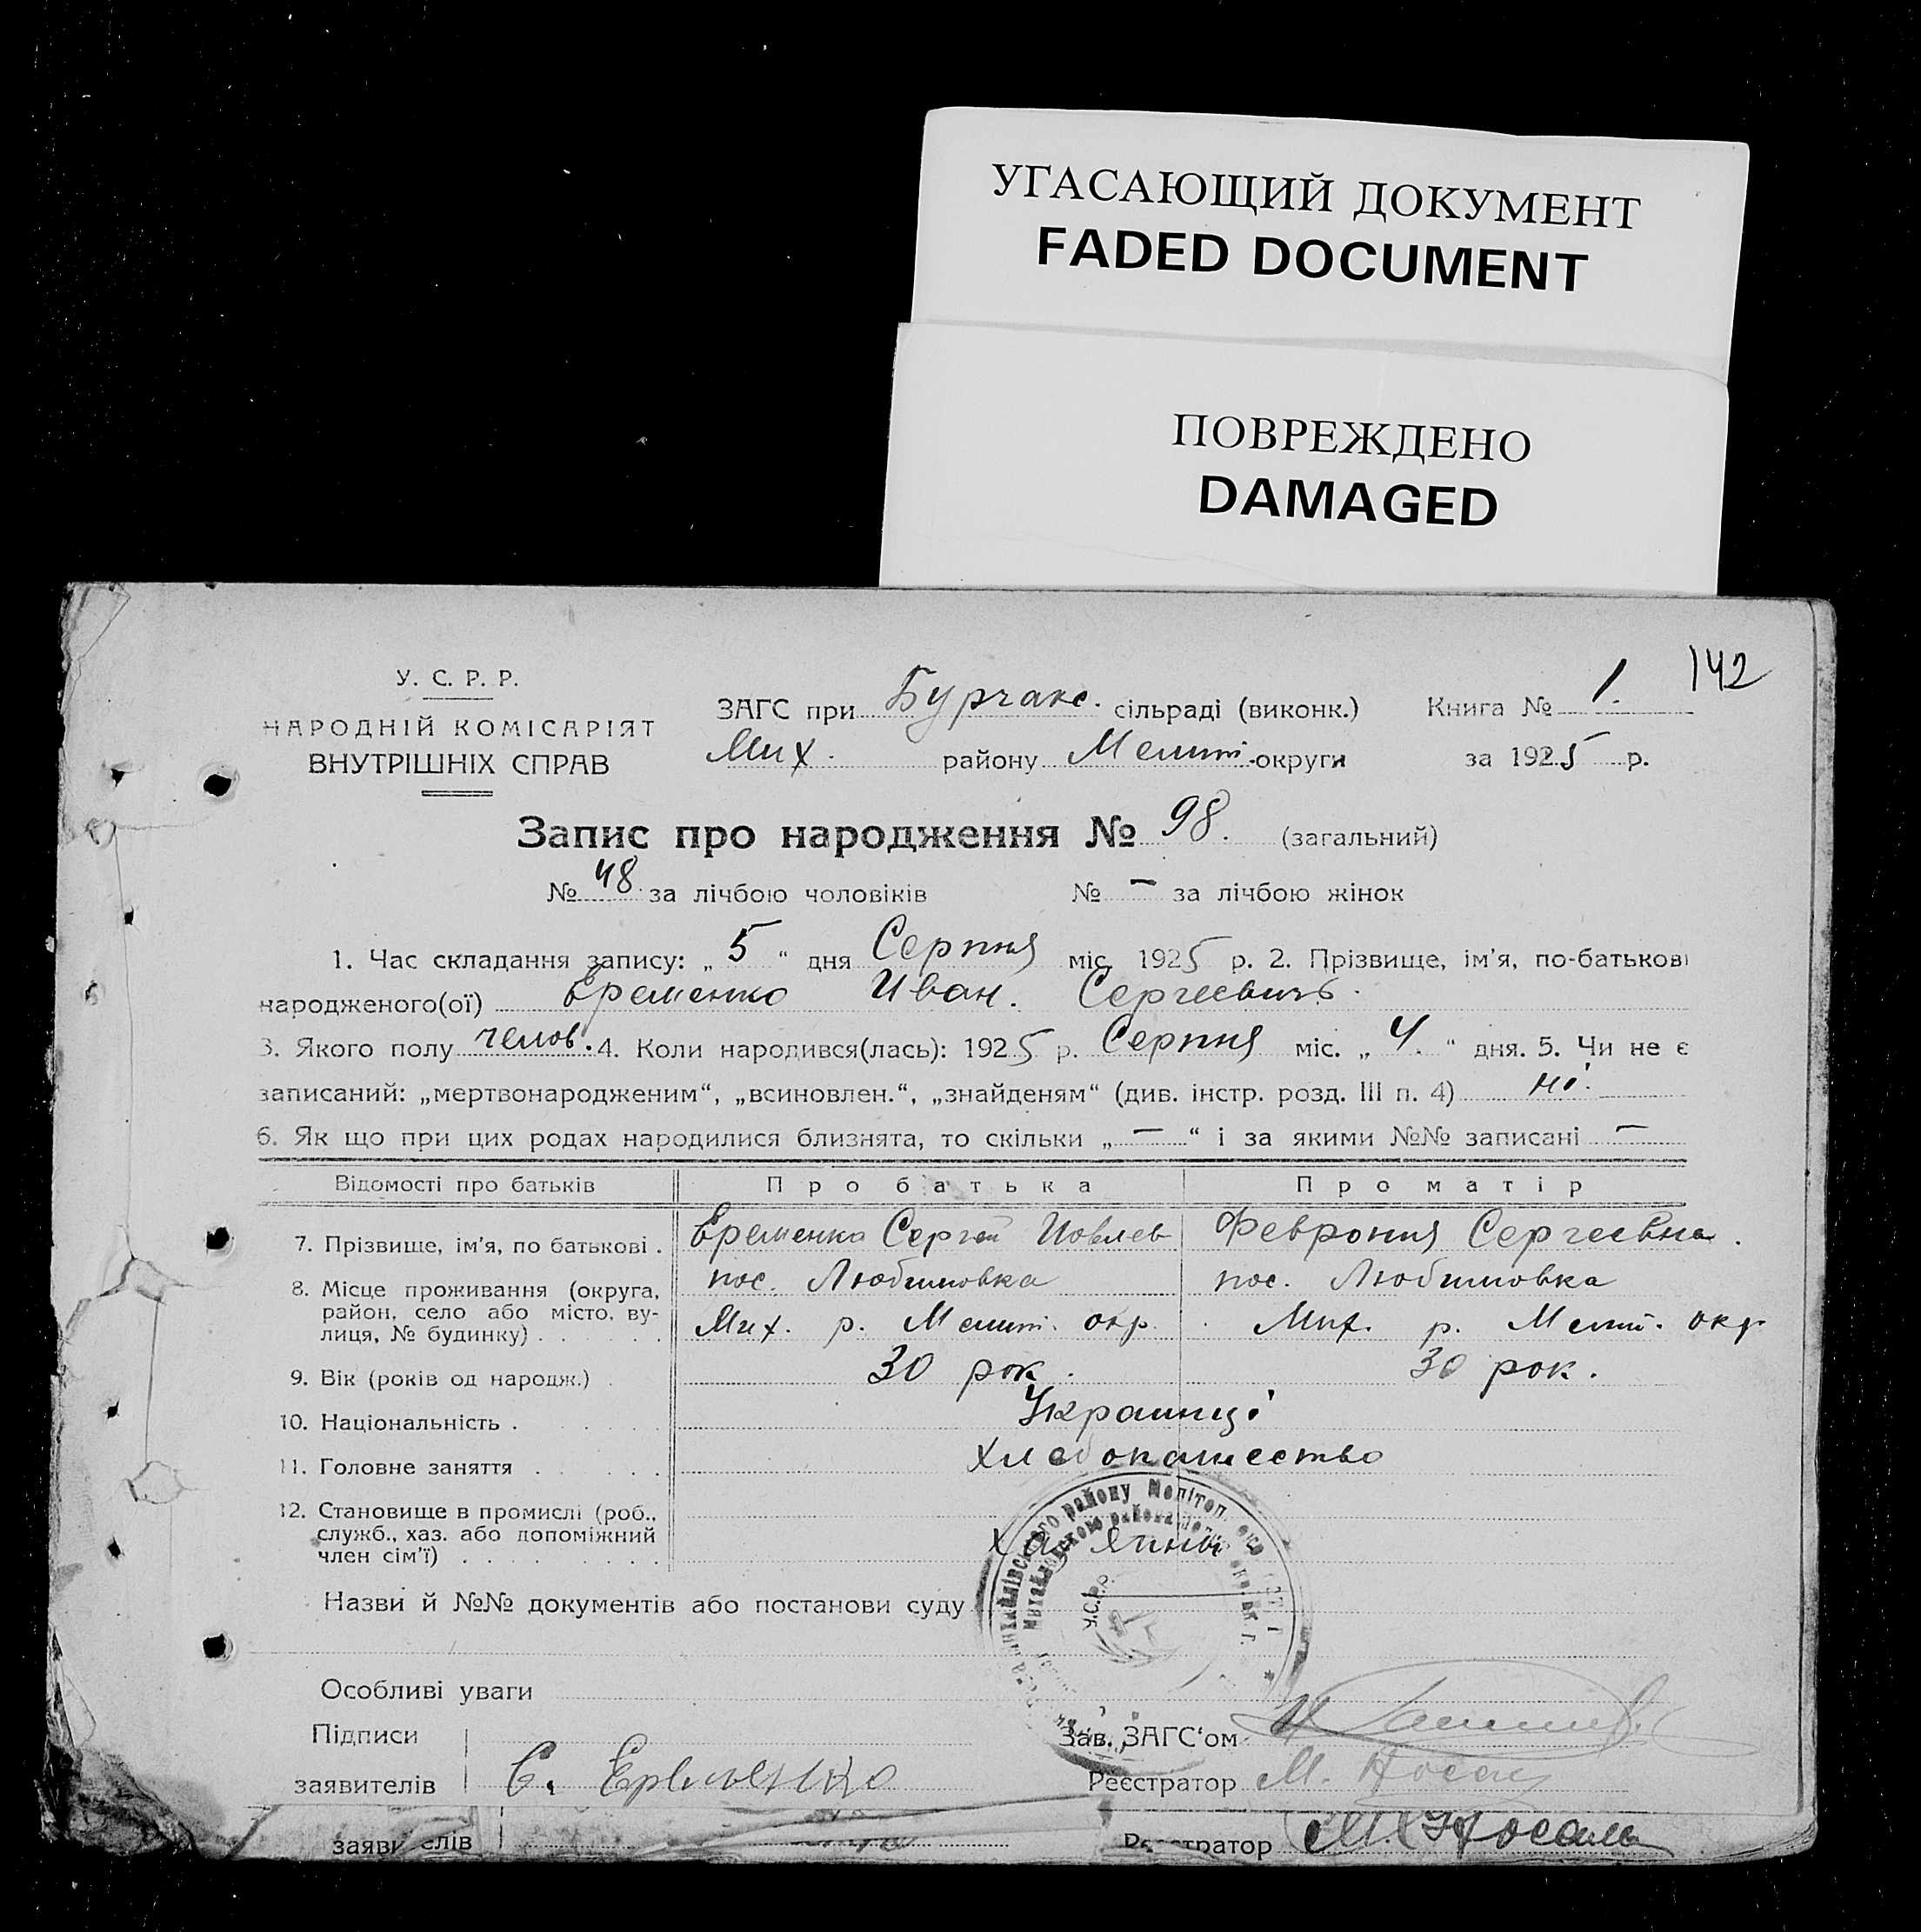 УГАСАЮЩИЙ ДОКУМЕНТ
FADED DOCUMENT
ПОВРЕЖДЕНО
DAMAGED
142
У. С. Р. Р.
НАРОДНІЙ КОМІСАРІЯТ
ВНУТРІШНІХ СПРАВ
ЗАГС при Бурчакс. сільраді (виконк.) Книга № 1.
Мих. району Меліт. округи за 1925 р.
Запис про народження № 98. (загальний)
№ 48 за лічбою чоловіків № — за лічбою жінок
1. Час складання запису: „5“ дня Серпня міс. 1925 р. 2. Прізвище, ім'я, по-батькові
народженого(ої) Еременко Иван. Сергеевичъ.
3. Якого полу челов. 4. Коли народився(лась): 1925 р. Серпня міс. „4.“ дня. 5. Чи не є
записаний: „мертвонародженим“, „всиновлен.“, „знайденям“ (див. інстр. розд. III п. 4) ні.
6. Як що при цих родах народилися близнята, то скільки „—“ і за якими №№ записані —
Відомості про батьків Про батька Про матір
7. Прізвище, ім'я, по батькові . Еременко Сергей Иовлев Феврония Сергеевна.
8. Місце проживання (округа, район, село або місто, вулиця, № будинку) . . . пос. Любимовка пос. Любимовка
Мих. р. Меліт. окр. Мих. р. Меліт. окр.
9. Вік (років од народж.) . 30 рок. 30 рок.
10. Національність . . . . . Украинці
11. Головне заняття . . . . . хлебопашество
12. Становище в промислі (роб., служб., хаз. або допоміжний член сім'ї) . . . . . .
У.С.Р.Р.
Назви й №№ документів або постанови суду
Особливі уваги
Підписи
заявителів С. Еременко
Зав. ЗАГС'ом
Реєстратор М. Носаль
Реєстратор М. Носаль